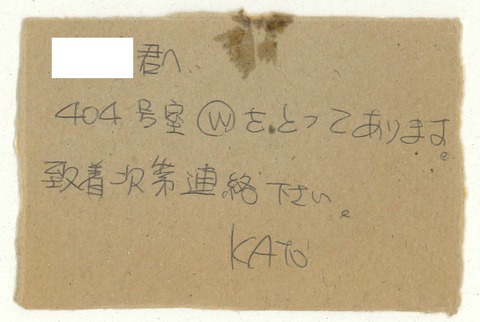 君へ
404号室Ⓦをとってあります。
致着次第連絡下さい。
KATO